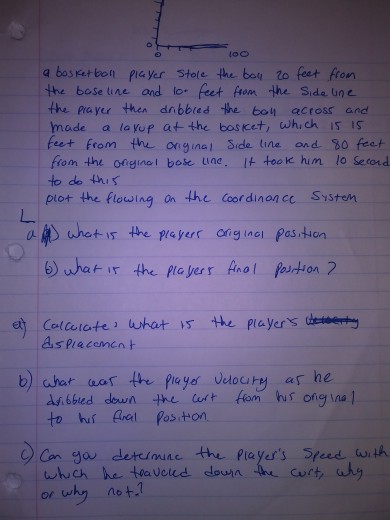 0
0 100
a basketball player Stole the ball 20 feet from
the baseline and 10- feet from the Side line
the player then dribbled the ball across and
made a layup at the basket, which is 15
feet from the original Side line and 80 feet
from the original base line. It took him 10 Second
to do this
plot the flowing on the coordinance System
a) what is the players original position
b) what is the players final position?
a) Calculate: what is the player's velocity
displacement
b) what was the player velocity as he
dribbled down the curt from his original
to his final position
c) Can you determine the player's Speed with
which he traveled down the curt, why
or why not?